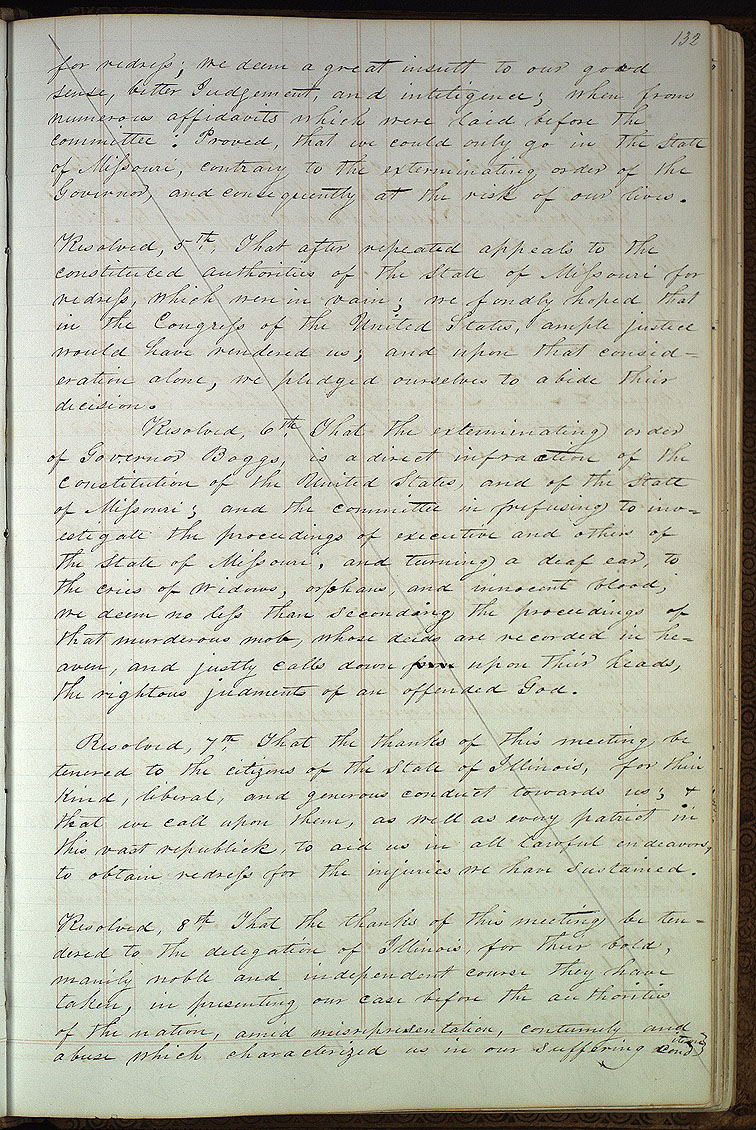 132
for redress; we deem a great insult to our good
sense, better Judgement, and inteligence; when from
numerous affidavits which were laid before the
committee: Proved, that we could only go in the State
of Missouri, contrary to the exterminating order of the
Governor, and consequently at the risk of our lives.
Resolved, 5th. That after repeated appeals to the
constituted authorities of the State of Missouri for
redress, which were in vain; we fondly hoped that
in the Congress of the United States, ample justice
would have rendered us; and upon that consid-
eration alone, we pledged ourselves to abide their
decision.
Resolved, 6th. That the exterminating order
of Governor Boggs, is a direct infraction of the
Constitution of the United States, and of the State
of Missouri; and the committee in refusing to inv=
estigate the proceedings of executive and others of
the State of Missouri, and turning a deaf ear, to
the cries of widows, orphans, and innocent blood;
we deem no less than seconding the proceedings of
that murderous mob, whose deeds are recorded in he=
aven, and justly calls down upon their heads,
the rightous judments of an offended God.
Resolved, 7th. That the thanks of this meeting be
tenered to the citizens of the State of Illinois, for their
kind, liberal, and generous conduct towards us; &
that we call upon them, as well as every patriot in
this vast republick, to aid us in all lawful endeavors,
to obtain redress for the injuries we have sustained.
Resolved, 8th That the thanks of this meeting be ten=
dered to the delegation of Illinois, for their bold,
manily noble and independent course they have
taken, in presenting our case before the authorities
of the nation, amid misrepresentation, contumely and
abuse which characterized us in our suffering cond
itions;